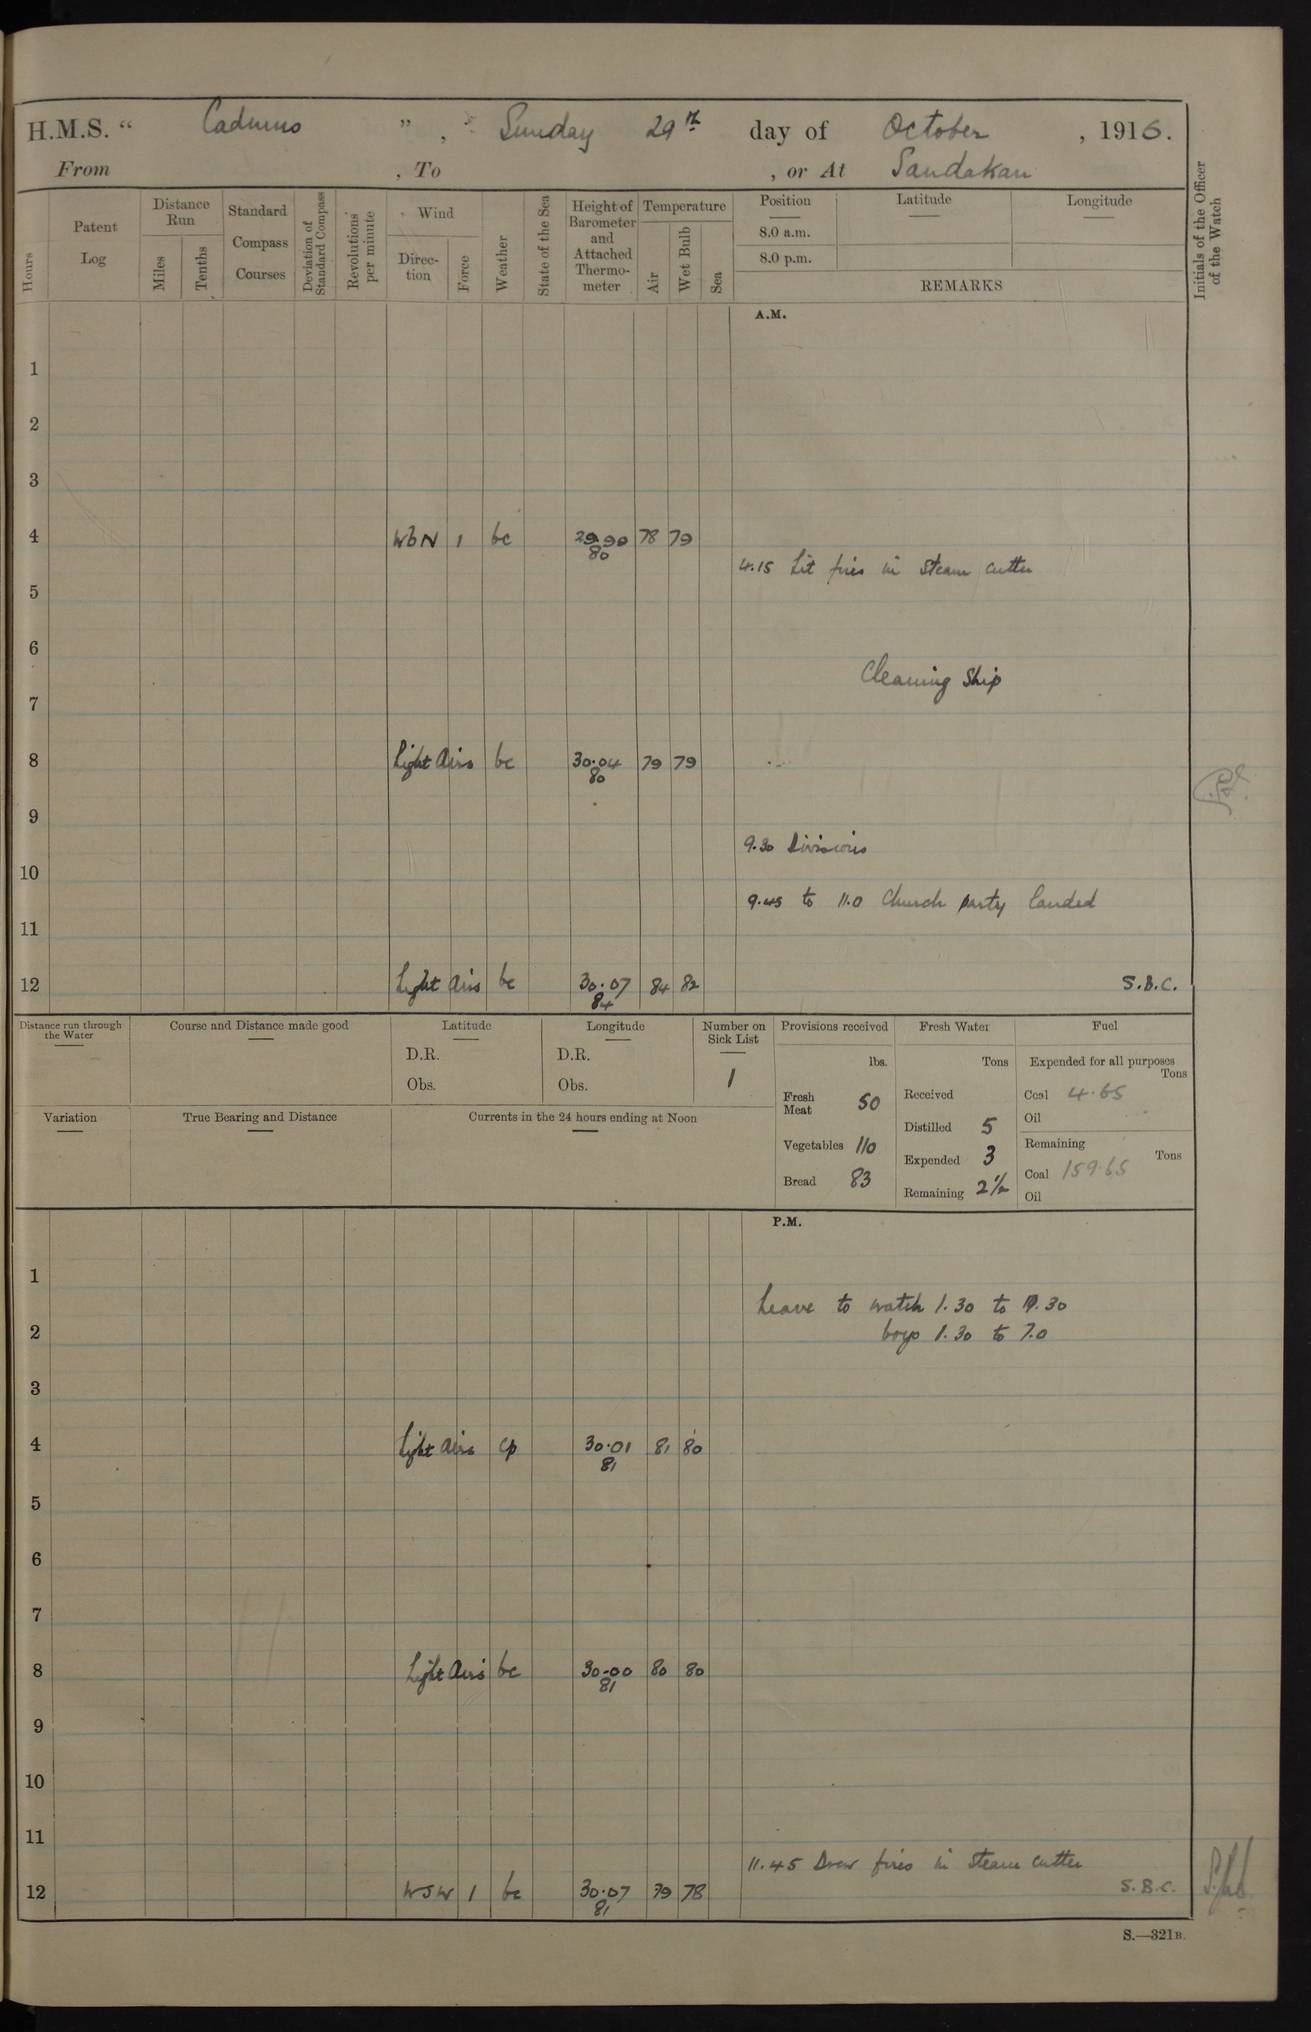 H.M.S. “ Cadmus ” , Sunday 29th day of October , 1916.
From , To , or At Sandakan
Hours
Patent Log
Distance Run
Miles
Tenths
Standard Compass Courses
Deviation of Standard Compass
Revolutions per minute
Wind
Direction
Force
Weather
State of the Sea
Height of Barometer and Attached Thermometer
Temperature
Air
Wet Bulb
Sea
Position
8.0 a.m.
8.0 p.m.
Latitude
Longitude
REMARKS
Initials of the Officer of the Watch
A.M.
1
2
3
4 WbN 1 bc 29.99 78 79
80
4.15 Lit fires in steam cutter
5
6
Cleaning Ship
7
8 Light Airs bc 30.04 79 79
80
9
9.30 Divisions
10
9.45 to 11.0 Church party landed
11
12 Light Airs bc 30.07 84 82 S.B.C.
84
Distance run through the Water
Course and Distance made good
Latitude
D.R.
Obs.
Longitude
D.R.
Obs.
Number on Sick List
1
Provisions received
lbs.
Fresh Meat 50
Vegetables 110
Bread 83
Fresh Water
Tons
Received
Distilled 5
Expended 3
Remaining 2½
Fuel
Expended for all purposes
Tons
Coal 4.65
Oil
Remaining
Tons
Coal 159.65
Oil
Variation
True Bearing and Distance
Currents in the 24 hours ending at Noon
P.M.
1
Leave to watch 1.30 to .30
2 boys 1.30 to 7.0
3
4 Light Airs cp 30.01 81 80
81
5
6
7
8 Light Airs bc 30.00 80 80
81
9
10
11
11.45 Drew fires in steam cutter
12 WSW 1 bc 30.07 79 78 S.B.C.
81
S.—321B.